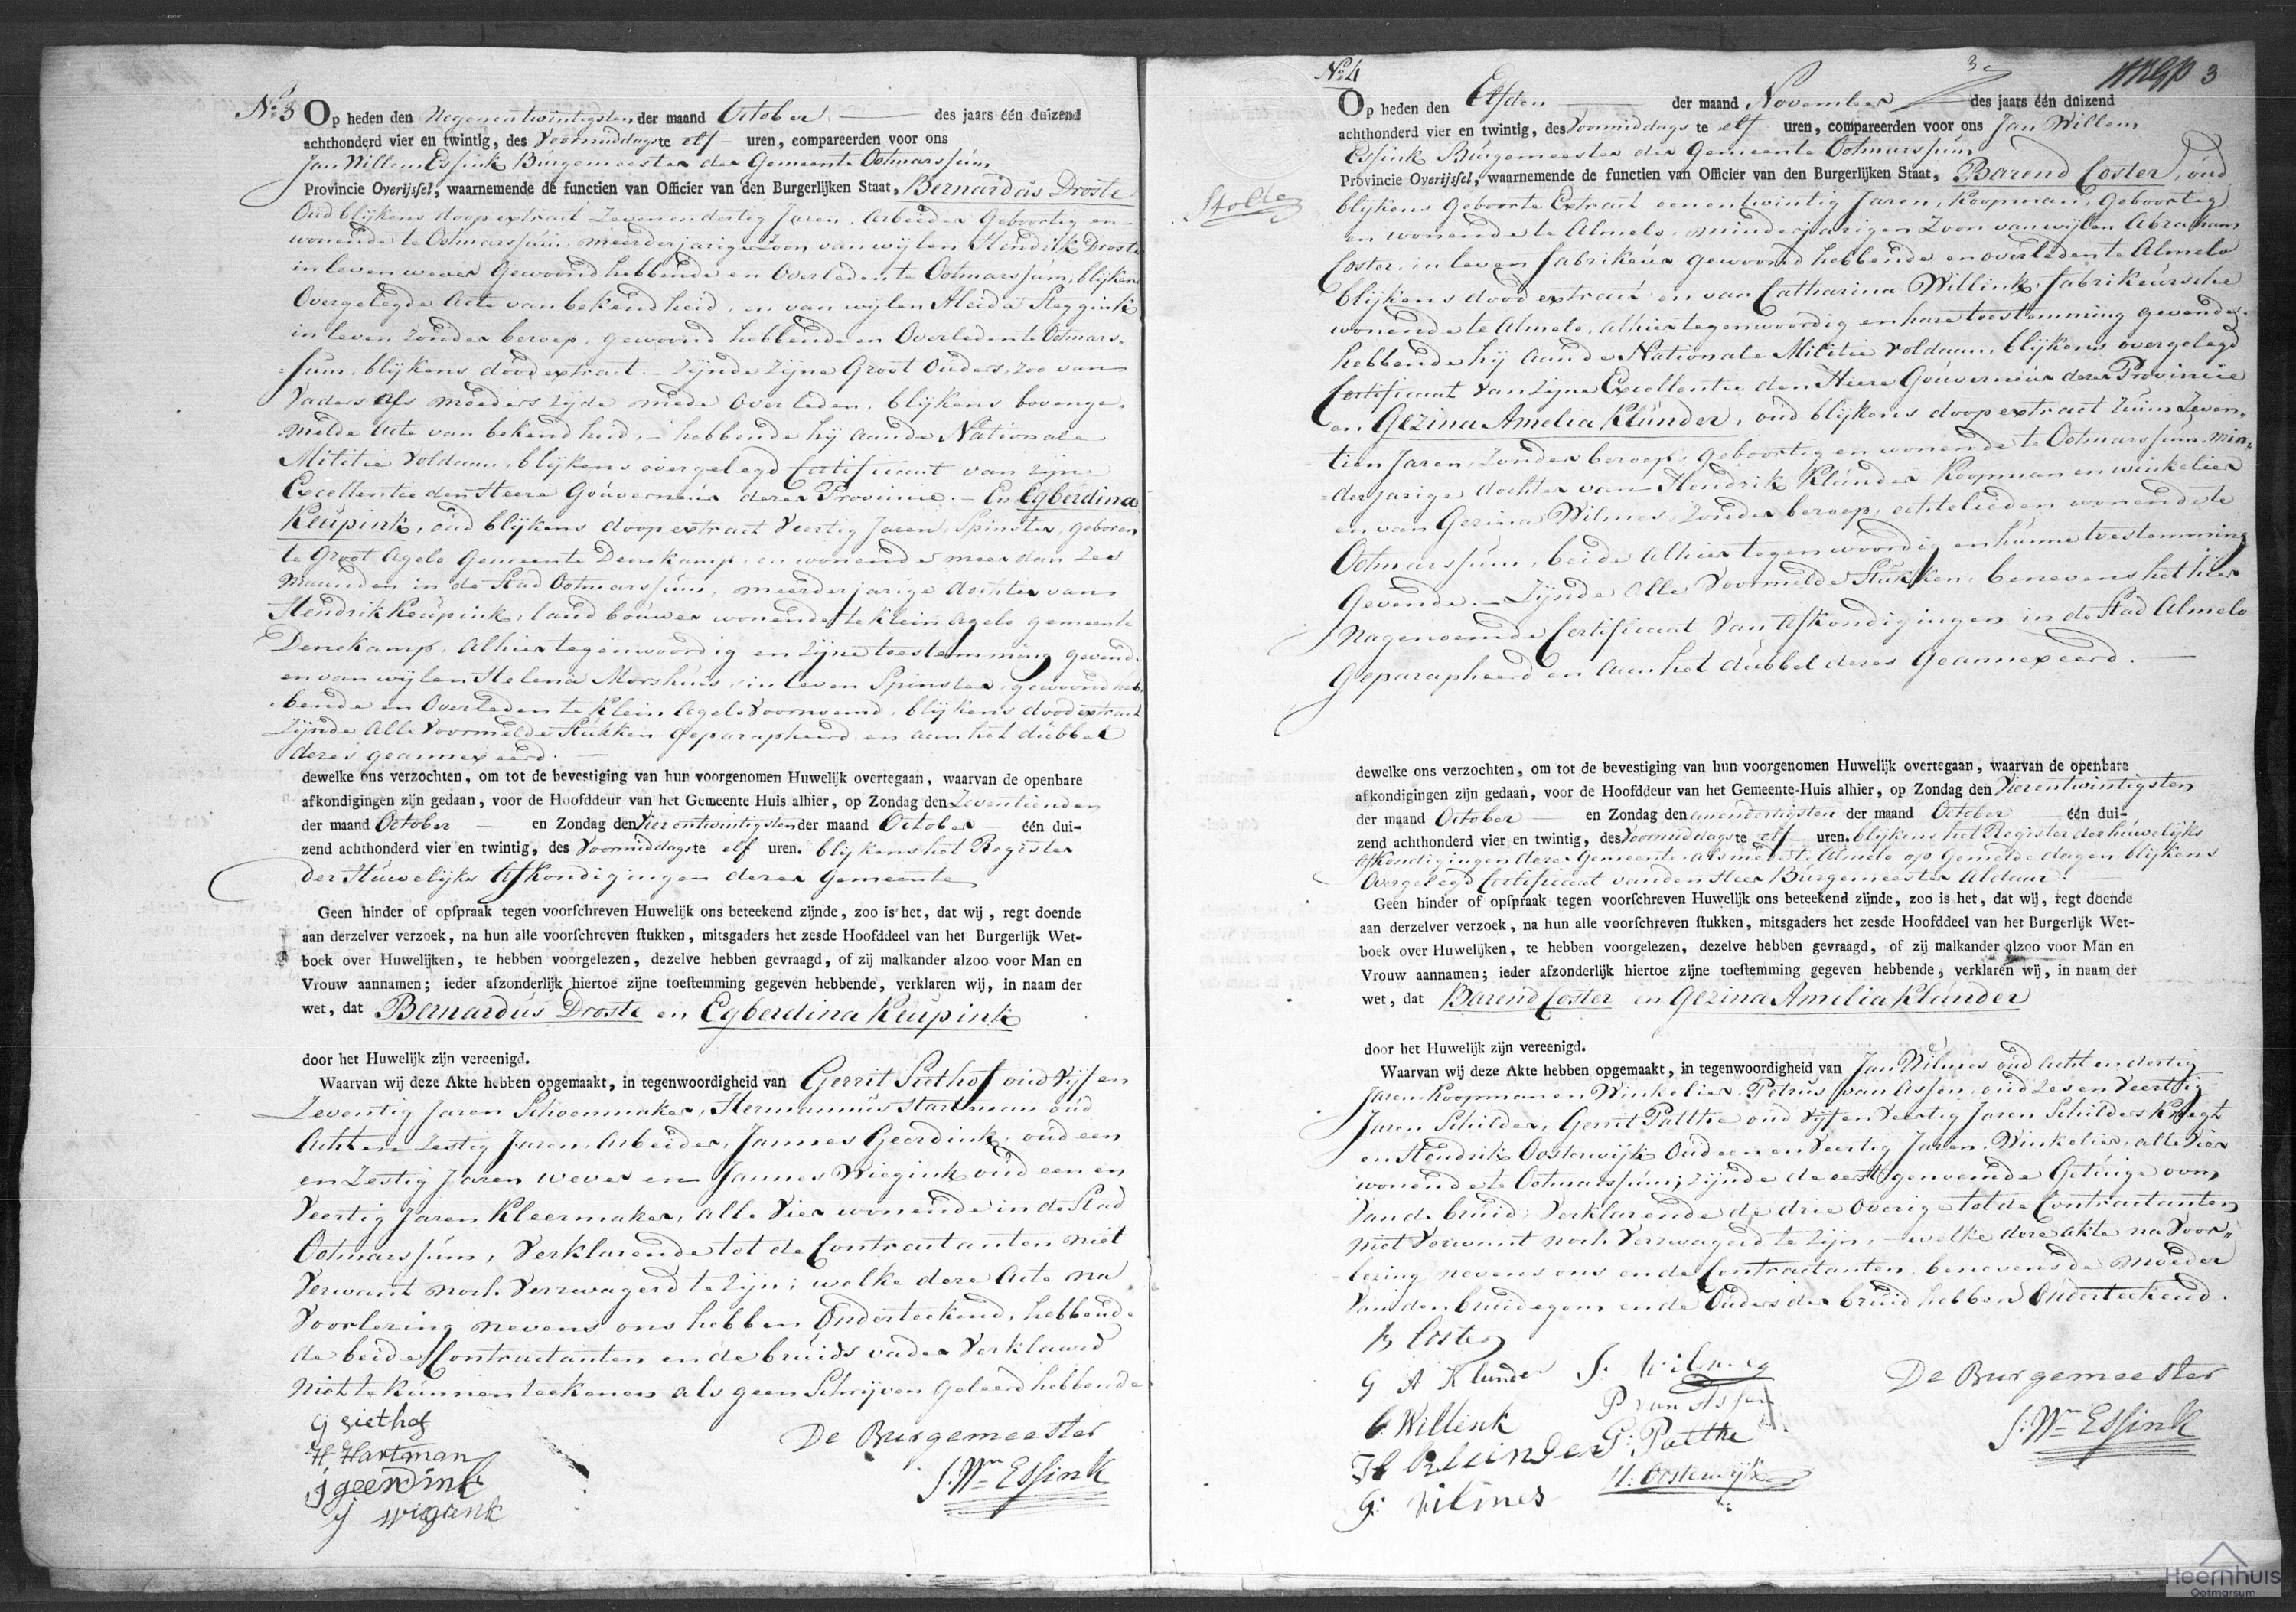 No. 3 Op heden den Negenentwintigsten der maand October des jaars één duizend
achthonderd vier en twintig, des Voormiddags te elf uren, compareerden voor ons
Jan Willem Essink Burgemeester der Gemeente Ootmarssum
Provincie Overijssel, waarnemende de functien van Officier van den Burgerlijken Staat, Bernardus Droste
Oud blijkens doopextract Zevenendertig Jaren, Arbeider Geboortig en
wonende te Ootmarssum, meerderjarige Zoon van wijlen Hendrik Droste
in leven wever Gewoond hebbende en Overleden te Ootmarssum, blijkens
Overgelegde Acte van bekendheid, en van wijlen Aleida Steggink
in leven zonder beroep, gewoond hebbende en Overleden te Ootmars-
sum, blijkens doodextract. – Zijnde Zijne Groot Ouders, zoo van
Vaders als moeders zijde mede Overleden, blijkens bovenge-
melde Acte van bekendheid, – hebbende hij aan de Nationale
Militie Voldaan, blijkens overgelegd Certificaat van zijne
Excellentie den Heere Gouverneur dezer Provincie. – En Egberdina
Keupink, oud blijkens doopextract Veertig Jaren, Spinster, geboren
te Groot Agelo Gemeente Denekamp, en wonende meer dan Zes
maanden in de Stad Ootmarssum, meerderjarige dochter van
Hendrik Keupink, landbouwer wonende te Klein Agelo gemeente
Denekamp, Alhier tegenwoordig en Zijne toestemming gevende
en van wijlen Helena Morshuis, in leven Spinster, gewoond heb-
bende en Overleden te Klein Agelo Voornoemd, blijkens doodextract
Zijnde Alle Voormelde Stukken geparapheerd en aan het dubbel
dezes geannexeerd.
dewelke ons verzochten, om tot de bevestiging van hun voorgenomen Huwelijk overtegaan, waarvan de openbare
afkondigingen zijn gedaan, voor de Hoofddeur van het Gemeente Huis alhier, op Zondag den Zeventienden
der maand October en Zondag den Vierentwintigsten der maand October één dui-
zend achthonderd vier en twintig, des Voormiddags te elf uren. blijkens het Register
der Huwelijks Afkondigingen dezer Gemeente
Geen hinder of opspraak tegen voorschreven Huwelijk ons beteekend zijnde, zoo is het, dat wij, regt doende
aan derzelver verzoek, na hun alle voorschreven stukken, mitsgaders het zesde Hoofddeel van het Burgerlijk Wet-
boek over Huwelijken, te hebben voorgelezen, dezelve hebben gevraagd, of zij malkander alzoo voor Man en
Vrouw aannamen; ieder afzonderlijk hiertoe zijne toestemming gegeven hebbende, verklaren wij, in naam der
wet, dat Bernardus Droste en Egberdina Keupink
door het Huwelijk zijn vereenigd.
Waarvan wij deze Akte hebben opgemaakt, in tegenwoordigheid van Gerrit Siethof oud Vijf en
Zeventig Jaren Schoenmaker, Hermannus Hartman oud
Acht en Zestig Jaren, Arbeider, Jannes Geerdink, oud een
en Zestig Jaren wever en Jannes Wiegink oud een en
Veertig Jaren Kleermaker, alle Vier wonende in de Stad
Ootmarssum, Verklarende tot de Contractanten niet
Verwant noch Verzwagerd te Zijn; welke deze Acte na
Voorlezing nevens ons hebben Onderteekend, hebbende
de beide Contractanten en de bruids vader Verklaard
niet te kunnen teekenen als geen Schrijven Geleerd hebbende
G Siethof
H Hartman
j geerdink
j wigink
De Burgemeester
J. Wm Essink
No. 4
3e
3
Stolte
Op heden den Elfden der maand November des jaars één duizend
achthonderd vier en twintig, des Voormiddags te elf uren, compareerden voor ons Jan Willem
Essink Burgemeester der Gemeente Ootmarssum
Provincie Overijssel, waarnemende de functien van Officier van den Burgerlijken Staat, Barend Coster, oud
blijkens Geboorte Extract eenentwintig Jaren, Koopman, Geboortig
en wonende te Almelo, minderjarigen Zoon van wijlen Abraham
Coster, in leven fabrikeur gewoond hebbende en overleden te Almelo
blijkens doodextract en van Catharina Willink, fabrikeursche
wonende te Almelo, alhier tegenwoordig en hare toestemming gevende.
hebbende hij aan de Nationale Militie Voldaan, blijkens overgelegd
Certificaat van Zijne Excellentie den Heere Gouverneur dezer Provincie
en Gezina Amelia Klunder, oud blijkens doopextract ruim Zeven-
tien Jaren, Zonder beroep, Geboortig en wonende te Ootmarssum, min-
derjarige dochter van Hendrik Klunder Koopman en winkelier
en van Gezina Wilmes, zonder beroep, echtelieden wonende te
Ootmarssum, beide Alhier tegenwoordig en hunne toestemming
Gevende. – Zijnde Alle Voormelde Stukken, benevens het hier
Nagenoemde Certificaat van Afkondigingen in de Stad Almelo
Geparapheerd en aan het dubbel dezes Geannexeerd. –
dewelke ons verzochten, om tot de bevestiging van hun voorgenomen Huwelijk overtegaan, waarvan de openbare
afkondigingen zijn gedaan, voor de Hoofddeur van het Gemeente-Huis alhier, op Zondag den Vierentwintigsten
der maand October en Zondag den eenendertigsten der maand October één dui-
zend achthonderd vier en twintig, des Voormiddags te elf uren. blijkens het Register der huwelijks
Afkondigingen dezer Gemeente, als mede te Almelo op Gemelde dagen blijkens
Overgelegd Certificaat van den Heer Burgemeester Aldaar.
Geen hinder of opspraak tegen voorschreven Huwelijk ons beteekend zijnde, zoo is het, dat wij, regt doende
aan derzelver verzoek, na hun alle voorschreven stukken, mitsgaders het zesde Hoofddeel van het Burgerlijk Wet-
boek over Huwelijken, te hebben voorgelezen, dezelve hebben gevraagd, of zij malkander alzoo voor Man en
Vrouw aannamen; ieder afzonderlijk hiertoe zijne toestemming gegeven hebbende, verklaren wij, in naam der
wet, dat Barend Coster en Gezina Amelia Klunder
door het Huwelijk zijn vereenigd.
Waarvan wij deze Akte hebben opgemaakt, in tegenwoordigheid van Jan Wilmes oud Acht en dertig
Jaren Koopman en Winkelier, Petrus van Assen, oud Zes en Veertig
Jaren Schilder, Gerrit Palthe oud Vijf en Veertig Jaren Schilders Knegt
en Hendrik Oosterwijk Oud een en Veertig Jaren Winkelier, alle Vier
wonende te Ootmarssum, zijnde de eerst genoemde Getuige oom
Van de bruid; Verklarende de drie Overige tot de Contractanten
niet Verwant noch Verzwagerd te Zijn, – welke deze akte na Voor-
lezing nevens ons en de Contractanten, benevens de moeder
Van den bruidegom en de Ouders der bruid hebben Onderteekend.
B Coster
G A Klunder
C. Willink
H Klunder
G. Wilmes
J. Wilmes
P van Assen
G. Palthe
H. Oosterwijk
De Burgemeester
J. Wm Essink
Heemhuis
Ootmarsum